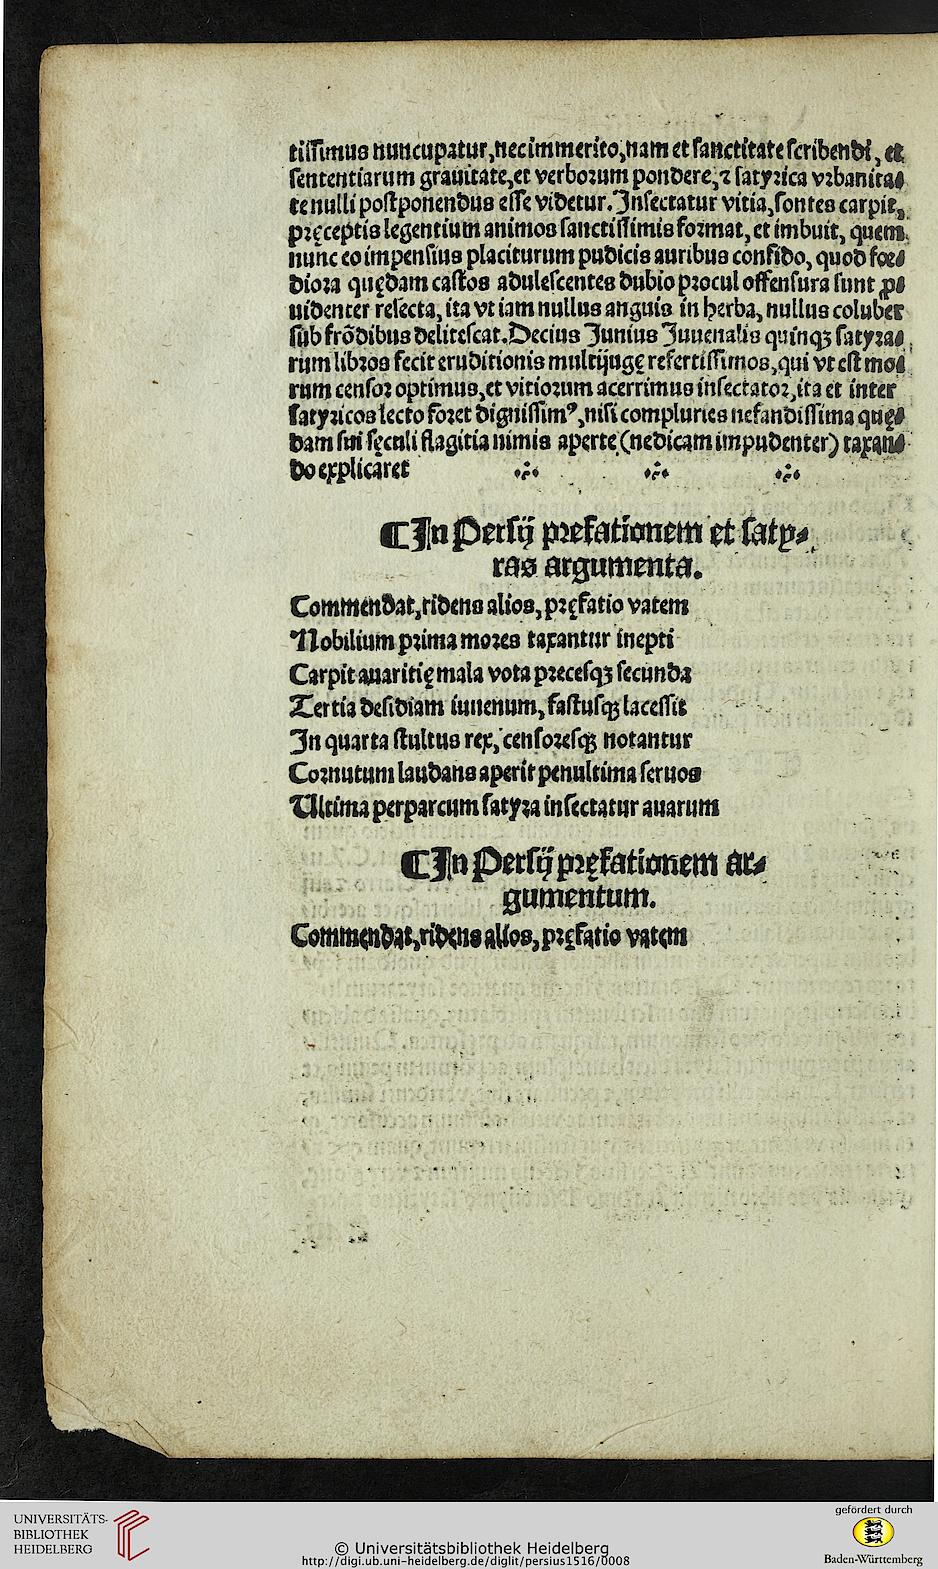 tissimus nuncupatur, nec immerito, nam et sanctitate scribendi, et
sententiarum grauitate, et verborum pondere, ⁊ satyrica vrbanita⸗
te nulli postponendus esse videtur. Insectatur vitia, sontes carpit,
pręceptis legentium animos sanctissimis format, et imbuit, quem
nunc eo impensius placiturum pudicis auribus confido, quod foe⸗
diora quędam castos adulescentes dubio procul offensura sunt ꝓ⸗
uidenter resecta, ita vt iam nullus anguis in herba, nullus coluber
sub frõdibus delitescat. Decius Junius Juuenalis quinqꝫ satyra⸗
rum libros fecit eruditionis multijugę refertissimos, qui vt est mo⸗
rum censor optimus, et vitiorum acerrimus insectator, ita et inter
satyricos lecto foret dignissimꝰ, nisi compluries nefandissima quę⸗
dam sui sęculi flagitia nimis aperte (ne dicam impudenter) taxan⸗
do explicaret
¶ In Persij prefationem et saty⸗
ras argumenta.
Commendat, ridens alios, pręfatio vatem
Nobilium prima mores taxantur inepti
Carpit auaritię mala vota precesqꝫ secunda
Tertia desidiam iuuenum, fastusqꝫ lacessit
In quarta stultus rex, censoresqꝫ notantur
Cornutum laudans aperit penultima seruos
Ultima perparcum satyra insectatur auarum
¶ In Persij pręfationem ar⸗
gumentum.
Commendat, ridens alios, pręfatio vatem
UNIVERSITÄTS-
BIBLIOTHEK
HEIDELBERG
© Universitätsbibliothek Heidelberg
http://digi.ub.uni-heidelberg.de/diglit/persius1516/0008
gefördert durch
Baden-Württemberg